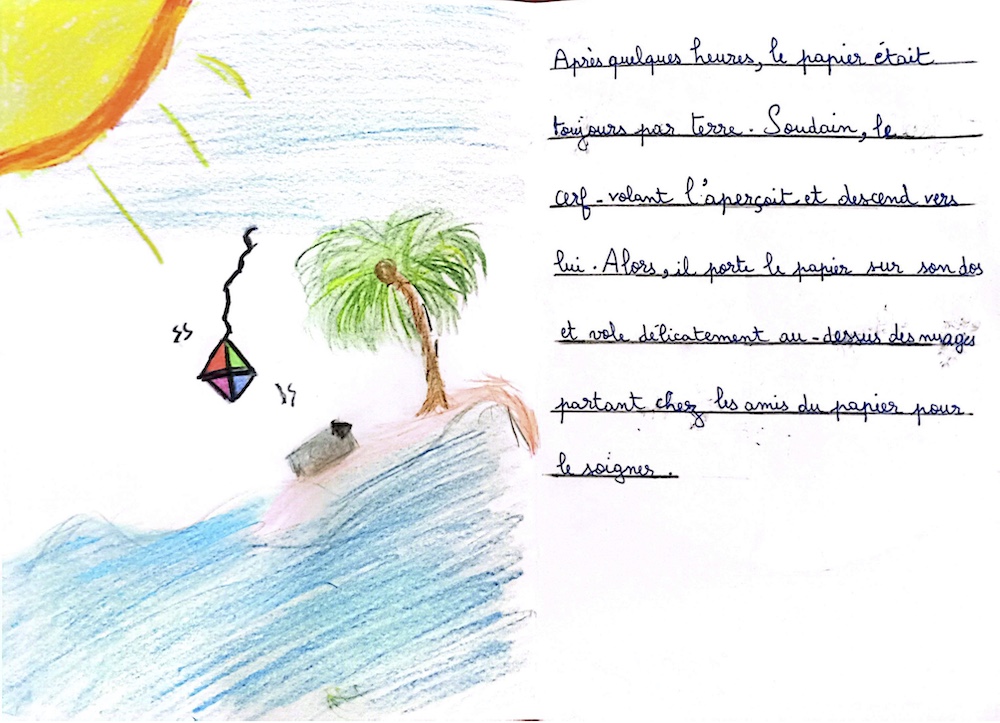 Après quelques heures, le papier était
toujours par terre. Soudain, le
cerf-volant l'aperçoit et descend vers
lui. Alors, il porte le papier sur son dos
et vole délicatement au-dessus des nuages
partant chez les amis du papier pour
le soigner.